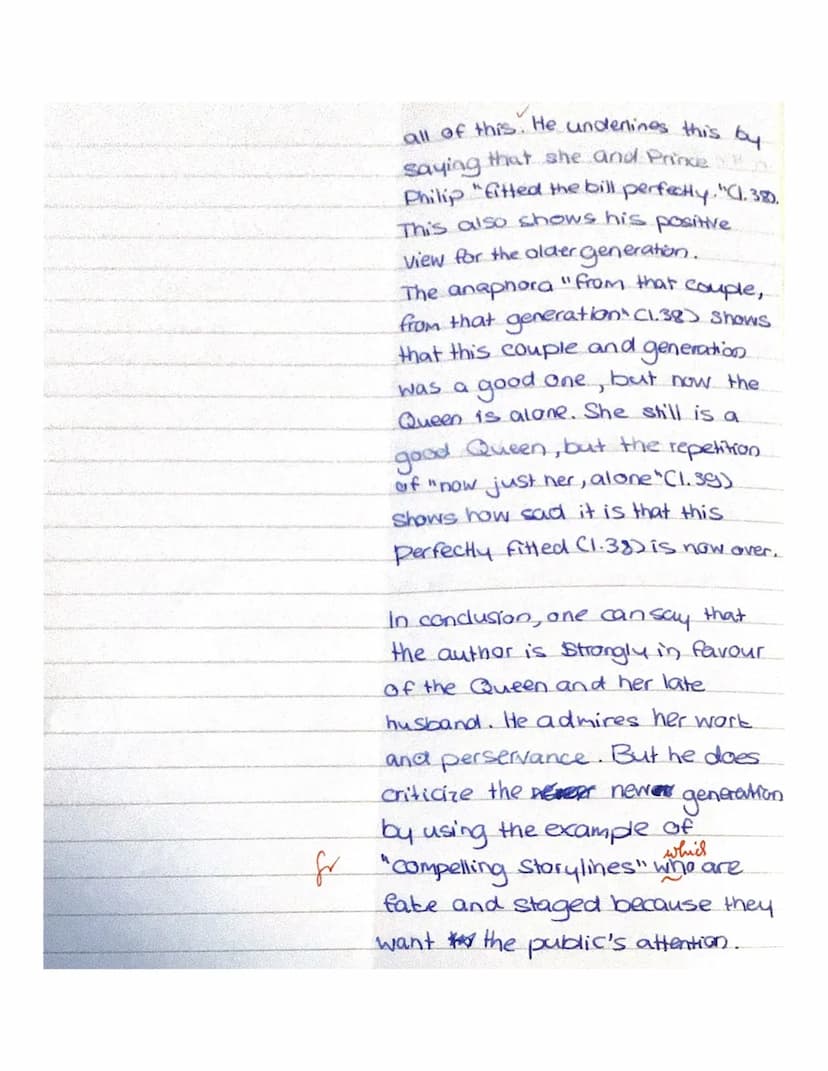 all of this. He underlines this by
saying that she and Prince
Philip "fitted the bill perfectly."(l.38).
This also shows his positive
view for the older generation.
The anaphora "from that couple,
from that generation" (l.38) shows
that this couple and generation
was a good one, but now the
Queen is alone. She still is a
good Queen, but the repetition
of "now just her, alone" (l.39)
shows how sad it is that this
perfectly fitted (l.38) is now over.
In conclusion, one can say that
the author is strongly in favour
of the Queen and her late
husband. He admires her work
and perservance. But he does
criticize the newer generation
by using the example of
which
Gr "compelling storylines" who are
fake and staged because they
want the public's attention.